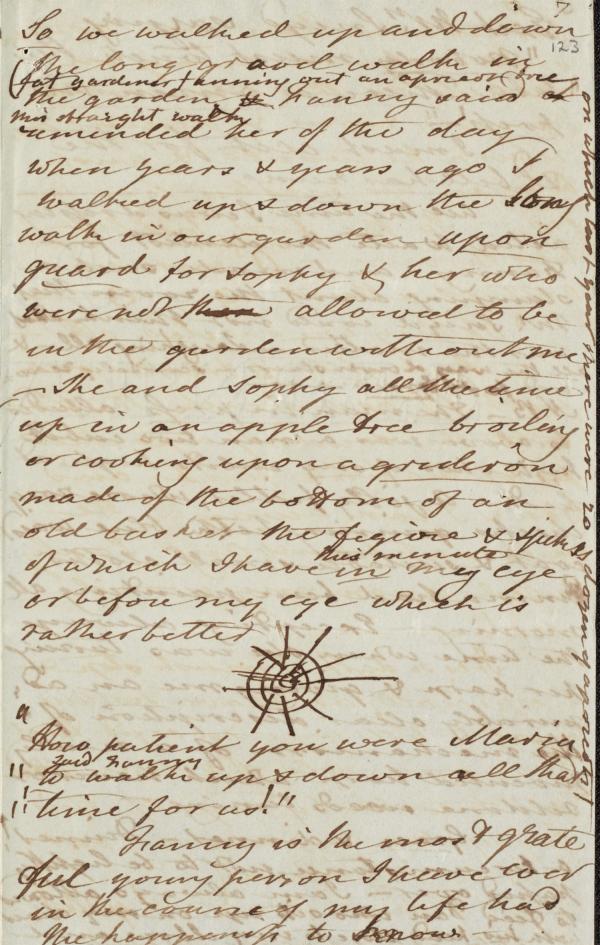 7
123
So we walked up and down
the long gravel walk in
(fat gardener tanning out an apricot tree
the garden Fanny said
this straight walk)
reminded her of the day
when years & years ago I
walked up & down the long
walk in our garden upon
guard for Sophy & her who
were not them allowed to be
in the garden without me
— She and Sophy all the time
up in an apple tree broiling
or cooking upon a gridirón
made of the bottom of an
old basket the figure & spikes
this minute
of which I have in my eye
or before my eye which is
rather better
a
How patient you were Maria
said Fanny
"to walk up & down all that
"time for us!"
Fanny is the most grate
ful young person I have ever
in the course of my life had
the happiness to know —
on which last year there were 20 dozen of apricots!